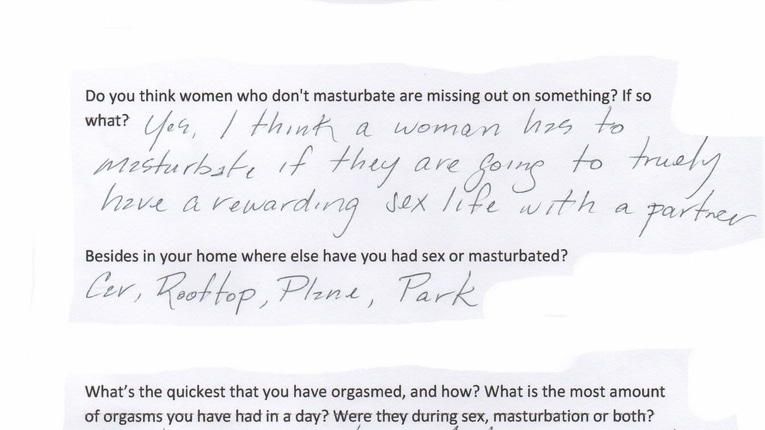 Do you think women who don't masturbate are missing out on something? If so
what? Yes, I think a woman has to
masturbate if they are going to truely
have a rewarding sex life with a partner
Besides in your home where else have you had sex or masturbated?
Car, Rooftop, Plane, Park
What's the quickest that you have orgasmed, and how? What is the most amount
of orgasms you have had in a day? Were they during sex, masturbation or both?